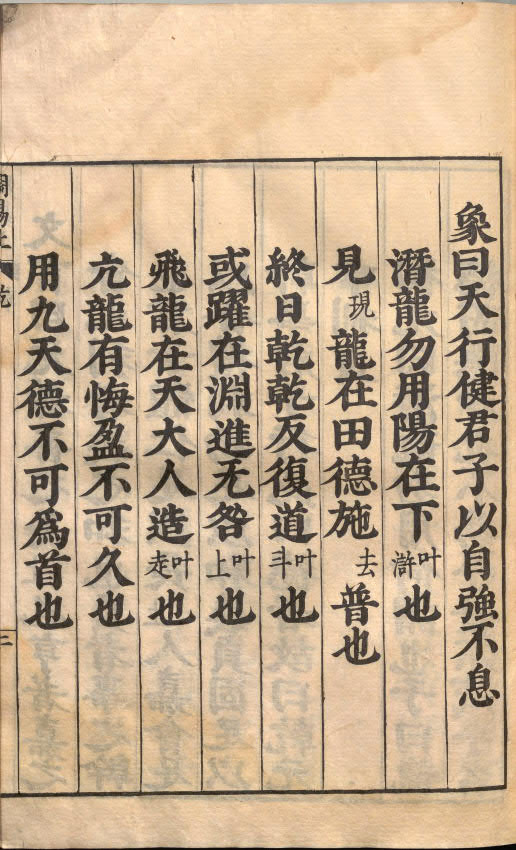 象曰天行健君子以自強不息
潛龍勿用陽在下叶滸也
見現龍在田德施去普也
終日乾乾反復道叶斗也
或躍在淵進无咎叶上也
飛龍在天大人造叶走也
亢龍有悔盈不可久也
用九天德不可爲首也
乾
二